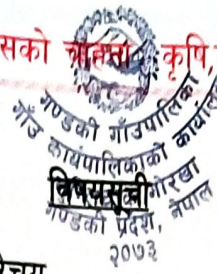 सको चाहना कृषि,
गण्डकी गाउँपालिका
गाउँ कार्यपालिकाको कार्यालय
विषयसूची
गोरखा
गण्डकी प्रदेश, नेपाल
२०७३